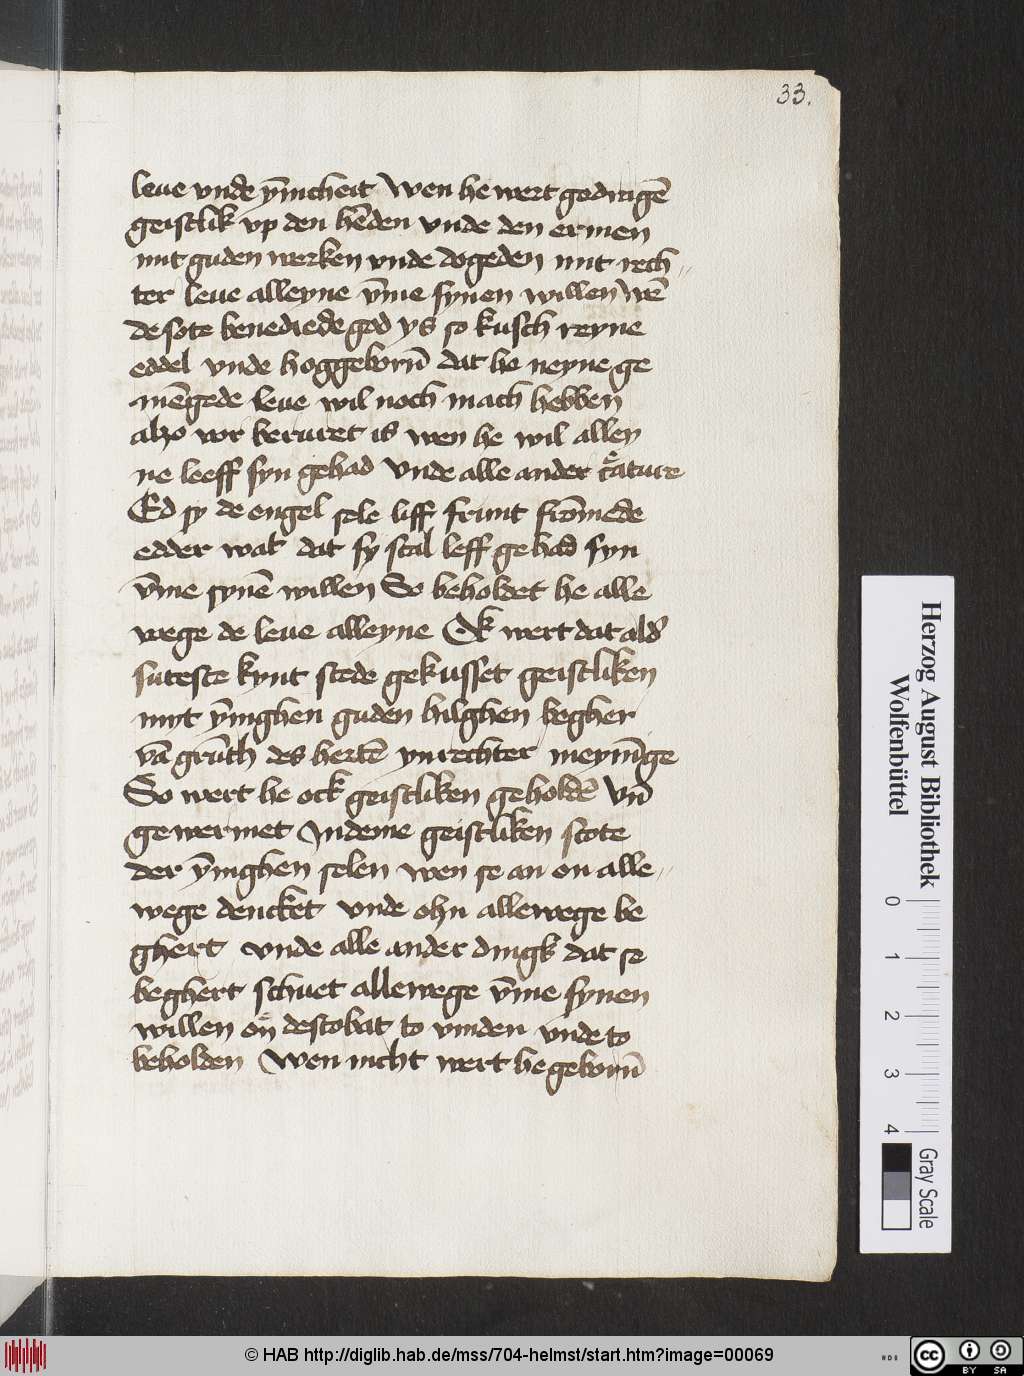 33.
leue vnde ȳnicheit Wen he wert gedrigē
geistlik vp den hēden vnde den ermen
mit guden werken vnde dogeden mit rech„
ter leue alleyne v̄me synen willen wē
de sote benediede god ys so kusch reyne
eddel vnde hoggeborn̄ dat he neyne ge
mēgede leue wil noch mach hebben
alzo vor beruret is wen he wil alley
ne leeff syn gehad vnde alle ander c̄ature
Ed sy de engel sele liff frunt frōmede
edder wat dat sy scal leff gehad syn
v̄me synē willen So beholdet he alle
wege de leue alleyne Ok wert dat ald'
suteste kynt stede gekusset geistliken
myt ȳnighen guden hilghen begher
vā grūth des hertē ynrechter meynīge
So wert he ock geistliken geholdē vn̄
gewermet Indeme geistliken scote
der ȳnighen selen wen se an on alle„
wege dencket vnde ohn allewege be
ghert vnde alle ander dingk dat se
beghert schuet allewege v̄me synen
willen on̄ descobat to vinden vnde to
beholden Wen nicht wert he geborn̄
Herzog August Bibliothek
Wolfenbüttel
0 1 2 3 4
Gray Scale
© HAB http://diglib.hab.de/mss/704-helmst/start.htm?image=00069
cc BY SA